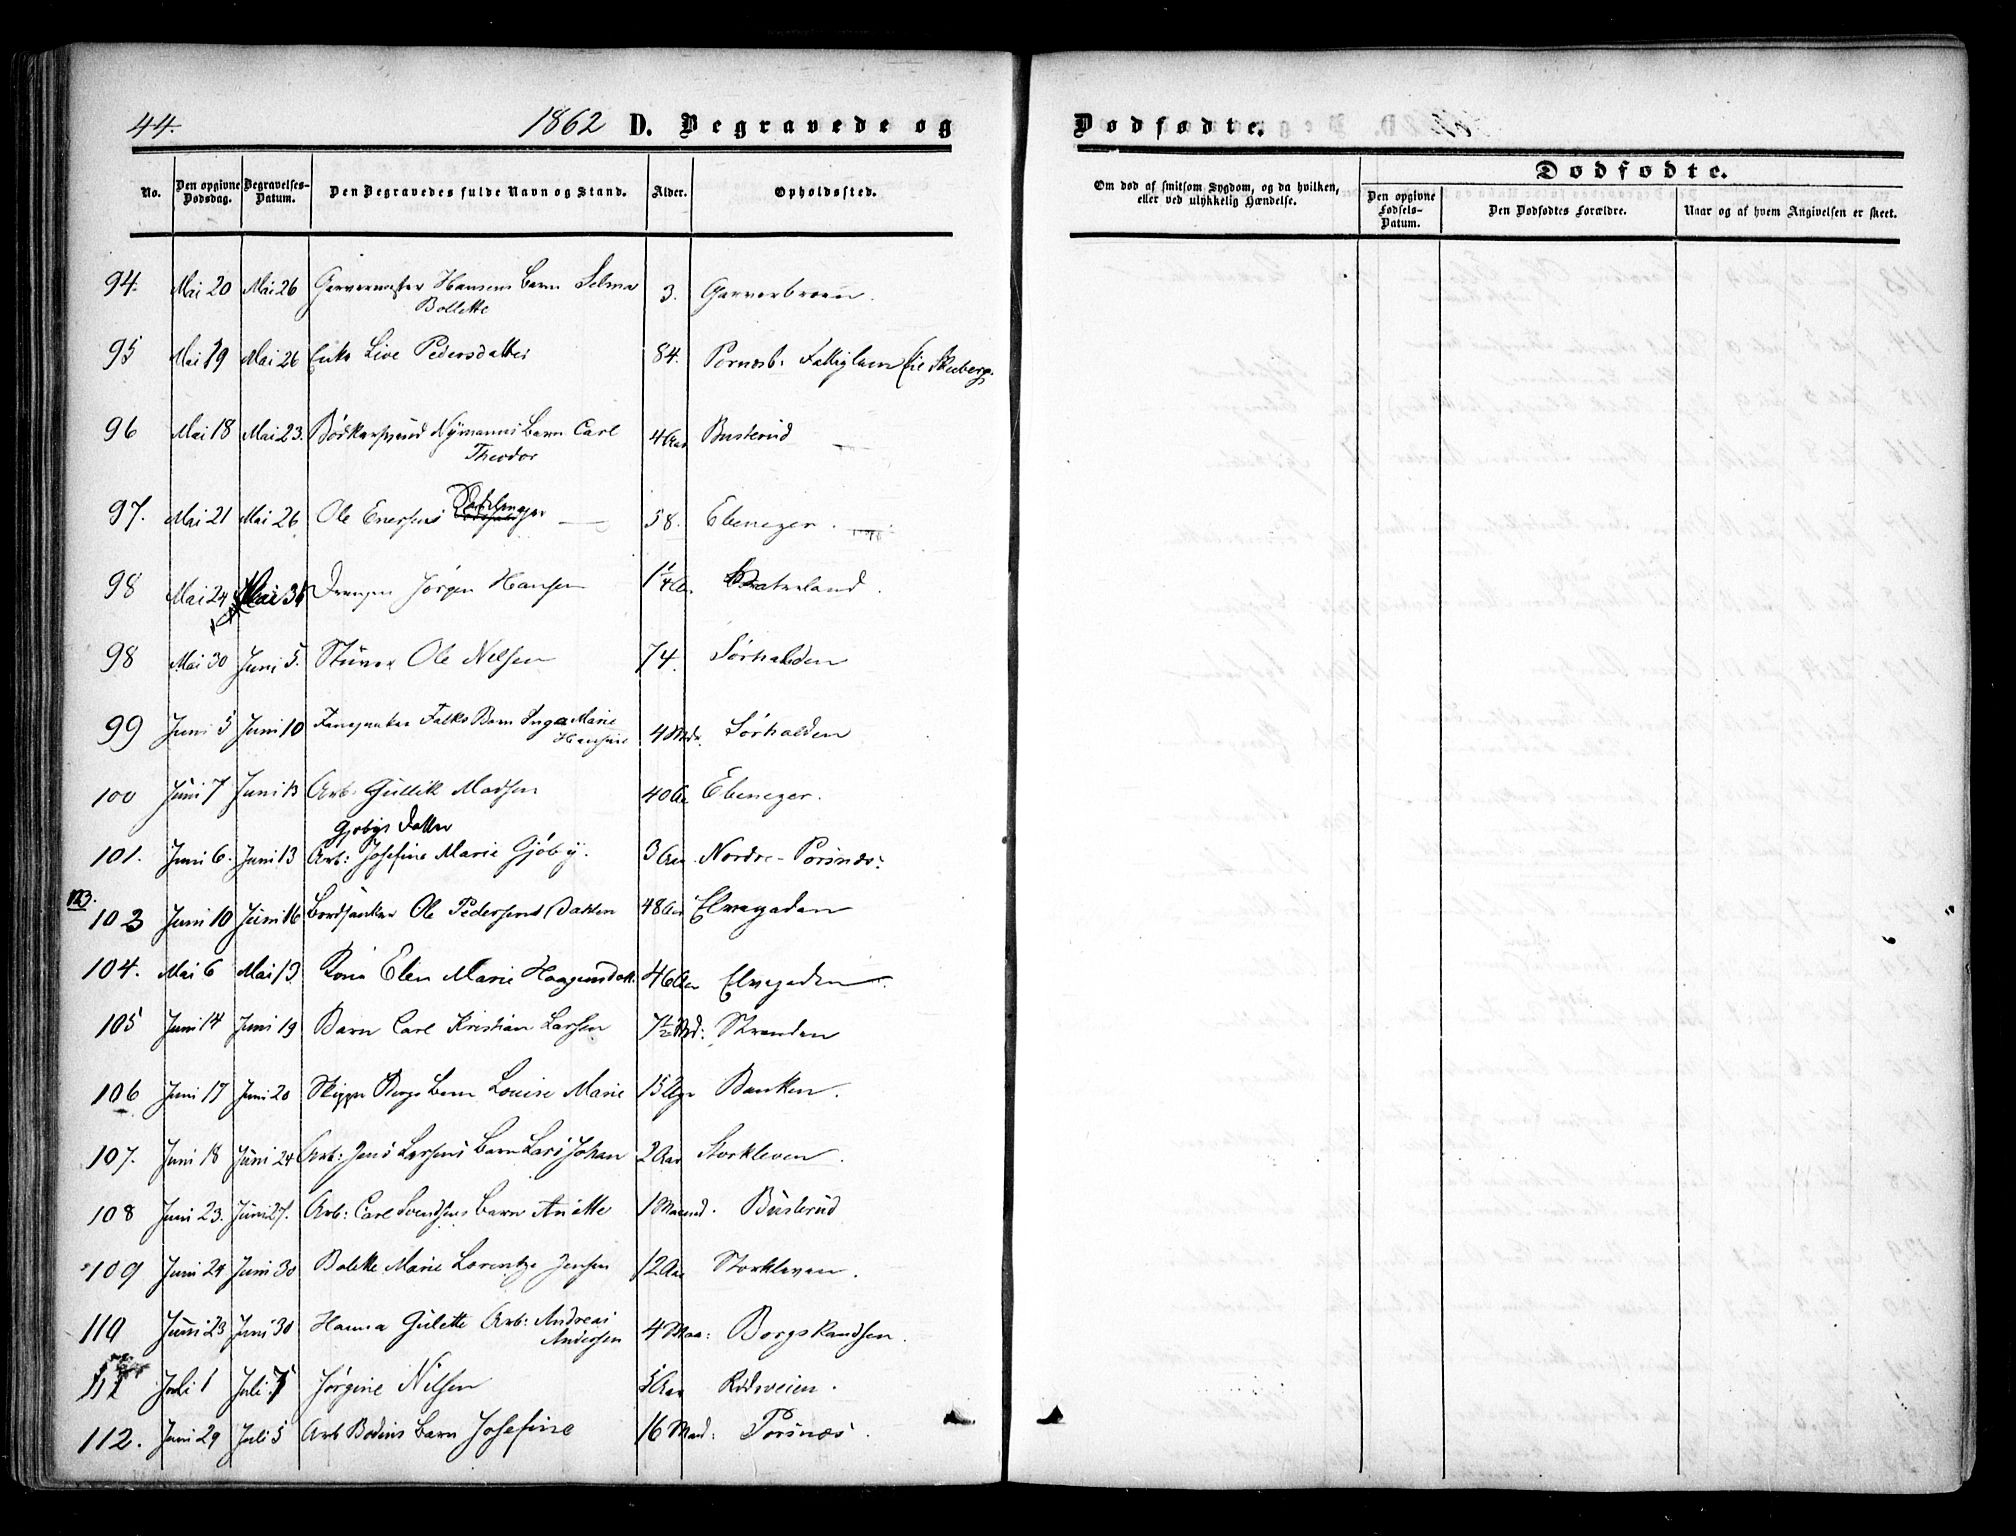 44.
1862 D. Begravede og
Dødfødte.
No.
Den opgivne Dødsdag.
Begravelses-Datum.
Den Begravedes fulde Navn og Stand.
Alder.
Opholdssted.
Om død af smitsom Sygdom, og da hvilken, eller ved ulykkelig Hændelse.
Dødfødte.
Den opgivne Fødsels-Datum.
Den Dødfødtes Forældre.
Naar og af hvem Angivelsen er skeet.
94. Mai 20 Mai 26 Garvermester Hansens Barn Selma 3.
Bollette
95 Mai 19 Mai 26 Enke Live Pedersdatter 84.
96 Mai 18 Mai 23. Bødkersvend Nymanns Barn Carl 4 Aar Busterud
Theodor
97. Mai 21 Mai 26 Ole Enersens 58. Ebenezer.
98 Mai 24 Mai 31 Drengen Jørgen Hansen 1 1/4 Aar Vaterland.
98 Mai 30 Juni 5. Stuver Ole Nelsen 74. Sørhalden
99 Juni 5 Juni 10 Falks Barn Inga Marie 4 Mdr. Sørhalden
Hansine
100 Juni 7 Juni 13 Arb: Gullik Madsen 40 Aar Ebenezer.
Gjøbys Datter
101. Juni 6. Juni 13 Arb: Josefine Marie Gjøby. 3 Aar Nordre-Porsnæs.
123.
103 Juni 10 Juni 16 Ole Pedersens Bakken 48 Aar Elvegaden
104. Mai 6 Mai 13 Kone Elen Marie Haagensdatt. 46 Aar Elvegaden
105 Juni 14 Juni 19 Barn Carl Kristian Larsen 7 1/2 Md: Stranden
106 Juni 17 Juni 20 Skipper Bergs Barn Louise Marie 15 Uger Banken.
107. Juni 18 Juni 24 Arb: Jens Larsens Barn Lars Johan 2 Aar Storkleven.
108 Juni 23. Juni 27. Arb: Carl Svendsens Barn Anette 1 Maaned. Busterud
109 Juni 24 Juni 30 Bolette Marie Lorentze Jensen 12 Aar Storkleven.
110 Juni 23 Juni 30 Hanna Gulette Arb: Andreas 4 Maa:
Andersen
111 Juli 1 Juli 7 Jørgine Nilsen 5 Aar Rødsveien.
112. Juni 29 Juli 5 Arb Bodins Barn Josefine 16 Maad: Porsnæs.